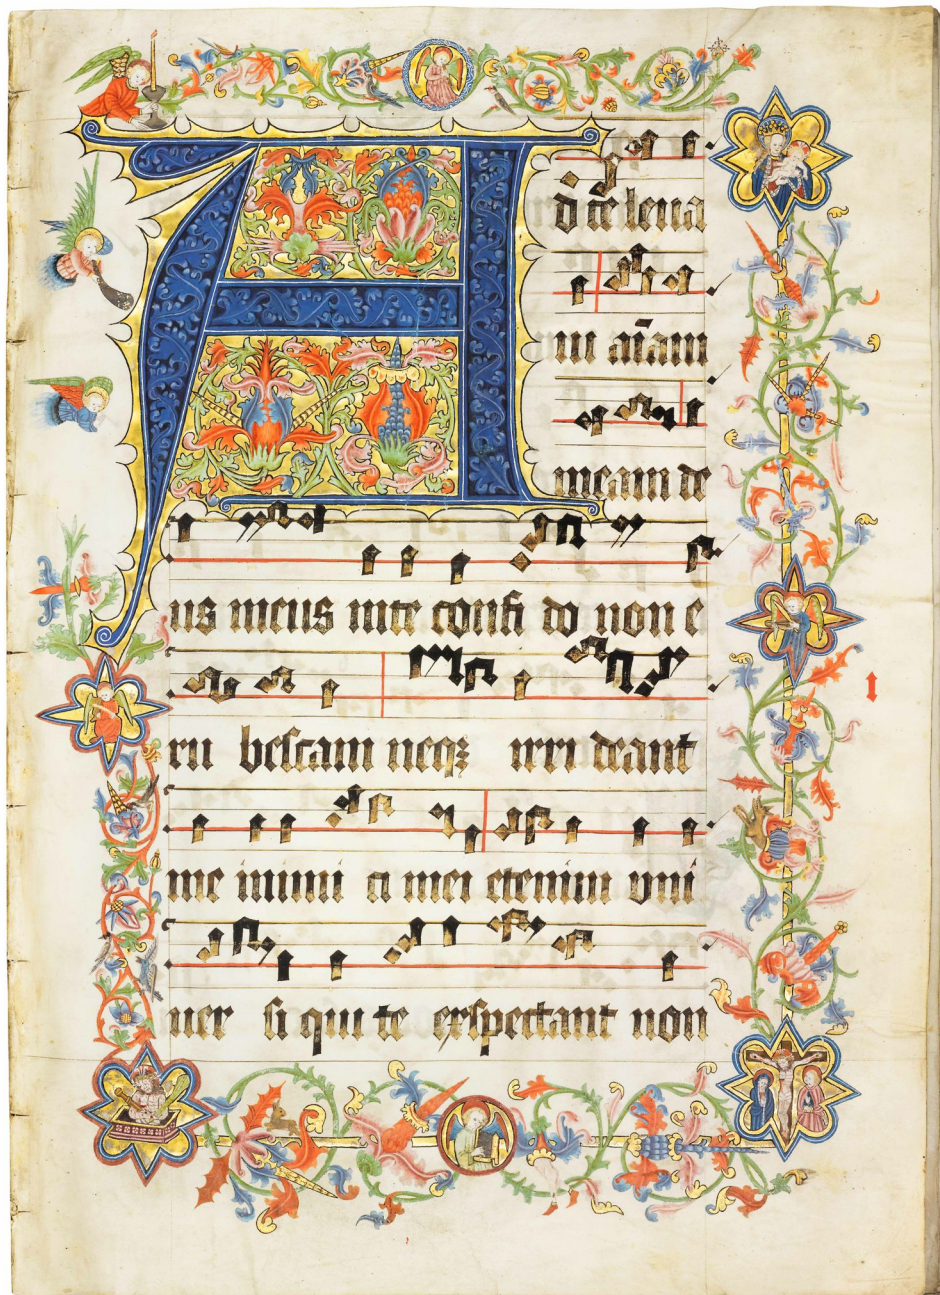 A
d te leua
ui aīam
meam de
us meus in te confi do non e
ru bescam neqꝫ irri deant
me inimi a mei etenim vni
uer si qui te exspectant non
I